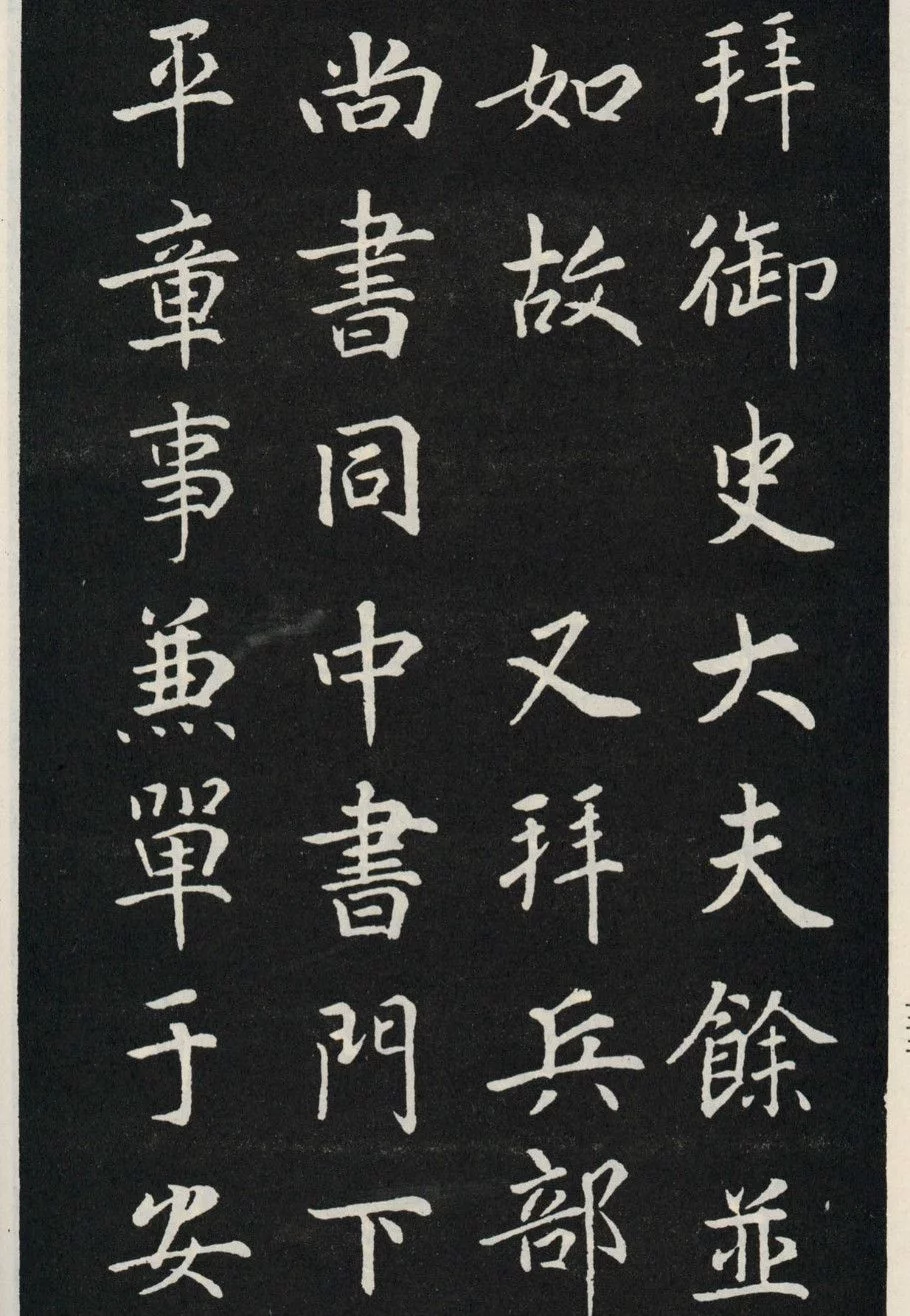 拜御史大夫餘並
如故　又拜兵部
尚書同中書門下
平章事兼單于安